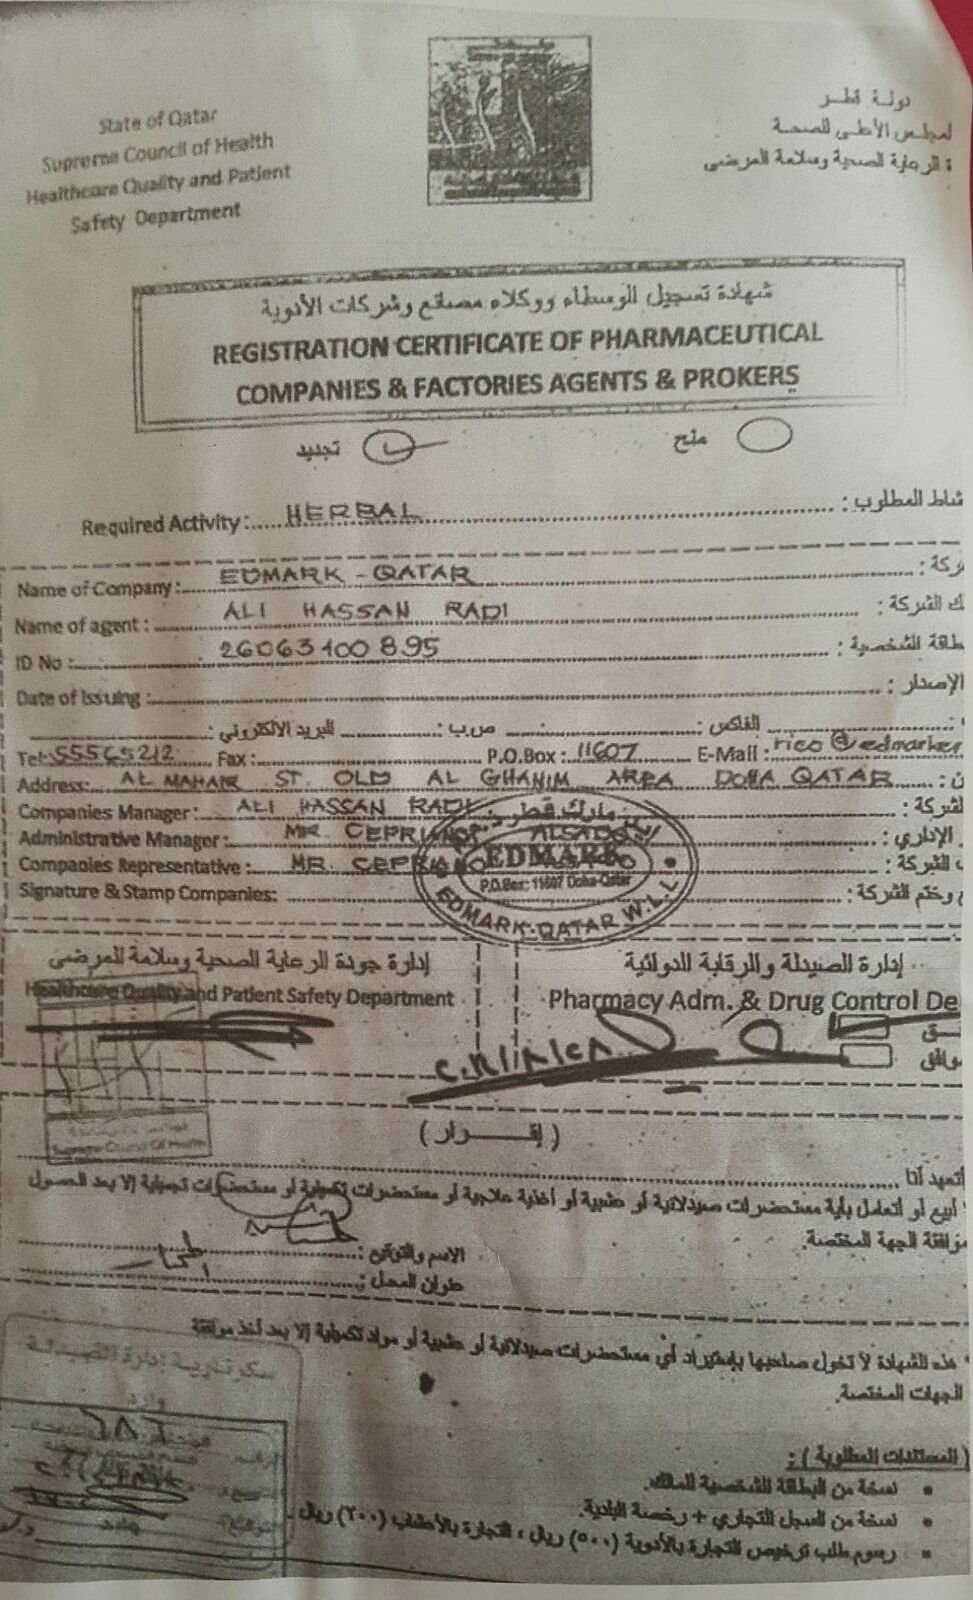 State of Qatar
Supreme Council of Health
Healthcare Quality and Patient
Safety Department
دولة قطر
لمجلس الأعلى للصحة
ة الرعاية الصحية وسلامة المرضى
شهادة تسجيل الوسطاء ووكلاء مصانع وشركات الأدوية
REGISTRATION CERTIFICATE OF PHARMACEUTICAL
COMPANIES & FACTORIES AGENTS & PROKERS
منح تجديد
Required Activity: HERBAL شاط المطلوب :
Name of Company: EDMARK - QATAR ركة :
Name of agent: ALI HASSAN RADI ك الشركة :
ID No: 26063400895 طاقة الشخصية :
Date of Issuing: الإصدار :
الفاكس : ص.ب : البريد الالكتروني :
Tel: 55565212 Fax: P.O.Box: 11607 E-Mail: rico@edmarker
Address: AL MAHAR ST. OLD AL GHANIM AREA DOHA QATAR ن :
Companies Manager: ALI HASSAN RADI لشركة :
Administrative Manager: MR. CEPRIANO ALSADO الإداري :
Companies Representative: MR. CEPRIANO الشركة :
Signature & Stamp Companies: ع وختم الشركة :
مارك قطر
EDMARK
P.O.Box: 11607 Doha-Qatar
EDMARK-QATAR W.L.L
إدارة الصيدلة والرقابة الدوائية
إدارة جودة الرعاية الصحية وسلامة المرضى
Healthcare Quality and Patient Safety Department
Pharmacy Adm. & Drug Control De
وافق
Supreme Council Of Health
( إقـــرار )
أتعهد أنا
أبيع أو أتعامل بأية مستحضرات صيدلانية أو طبية أو أغذية علاجية أو مستحضرات تكميلية أو مستحضرات تجميلية إلا بعد الحصول
موافقة الجهة المختصة.
الاسم والتوقيع :
عنوان المحل :
* هذه الشهادة لا تخول صاحبها بإستيراد أي مستحضرات صيدلانية أو طبية أو مواد تكميلية إلا بعد أخذ موافقة
الجهات المختصة.
سكرتارية إدارة الصيدلة
وارد
( المستندات المطلوبة ) :
• نسخة من البطاقة الشخصية للمالك.
• نسخة من السجل التجاري + رخصة البلدية.
• رسوم طلب ترخيص للتجارة بالأدوية (٥٠٠) ريال ، التجارة بالأعشاب (٢٠٠) ريال.